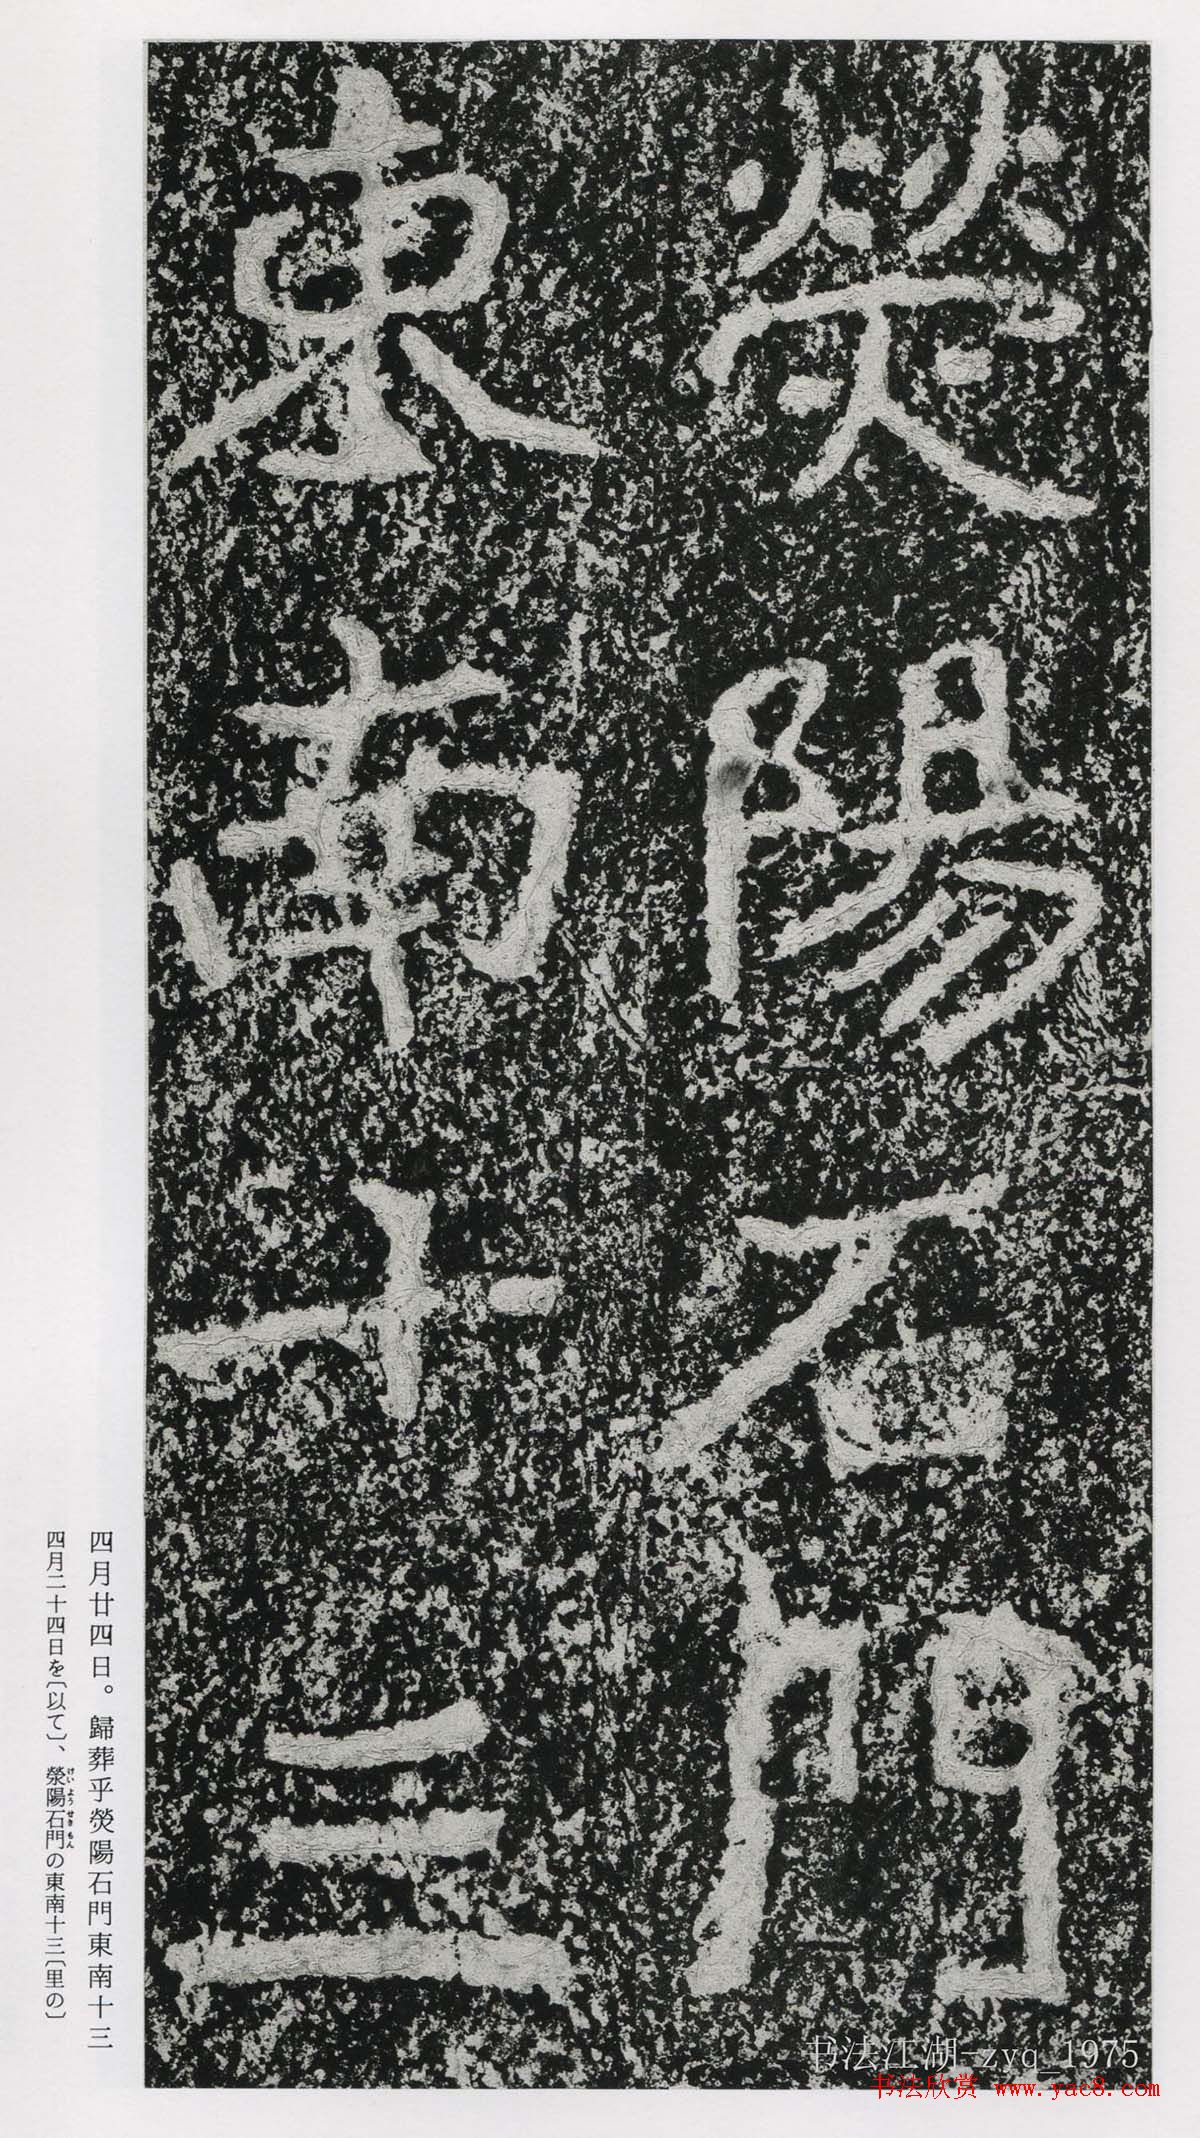 熒陽石門
東南十三
四月廿四日。歸葬乎熒陽石門東南十三
四月二十四日を〔以て〕、滎陽石門の東南十三〔里の〕
けいようせきもん
书法江湖-zyq_1975
书法欣赏 www.yac8.com